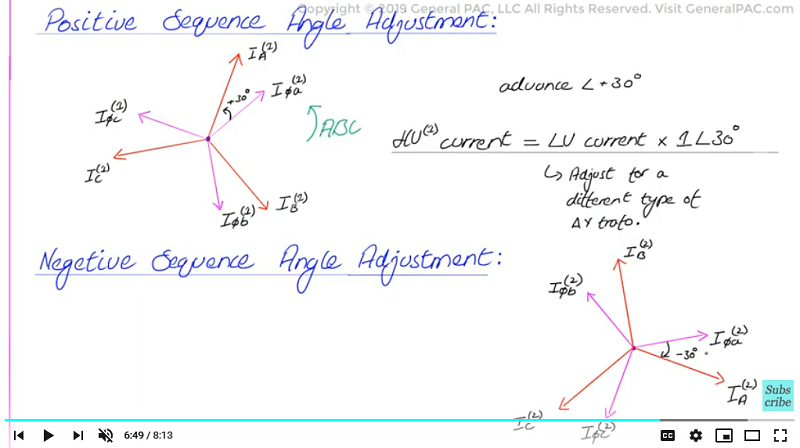 Copyright © 2019 General PAC, LLC All Rights Reserved. Visit GeneralPAC.com
Positive Sequence Angle Adjustment:
I_A^(1)
+30°
I_φa^(1)
I_φc^(1)
ABC
I_C^(1)
I_φb^(1)
I_B^(1)
advance ∠+30°
HV^(1) current = LV current × 1∠30°
↳ Adjust for a
different type of
ΔY trafo.
Negetive Sequence Angle Adjustment:
I_B^(2)
I_φb^(2)
I_φa^(2)
-30°
I_A^(2)
I_C^(2)
I_φc^(2)
Subs
cribe
6:49 / 8:13